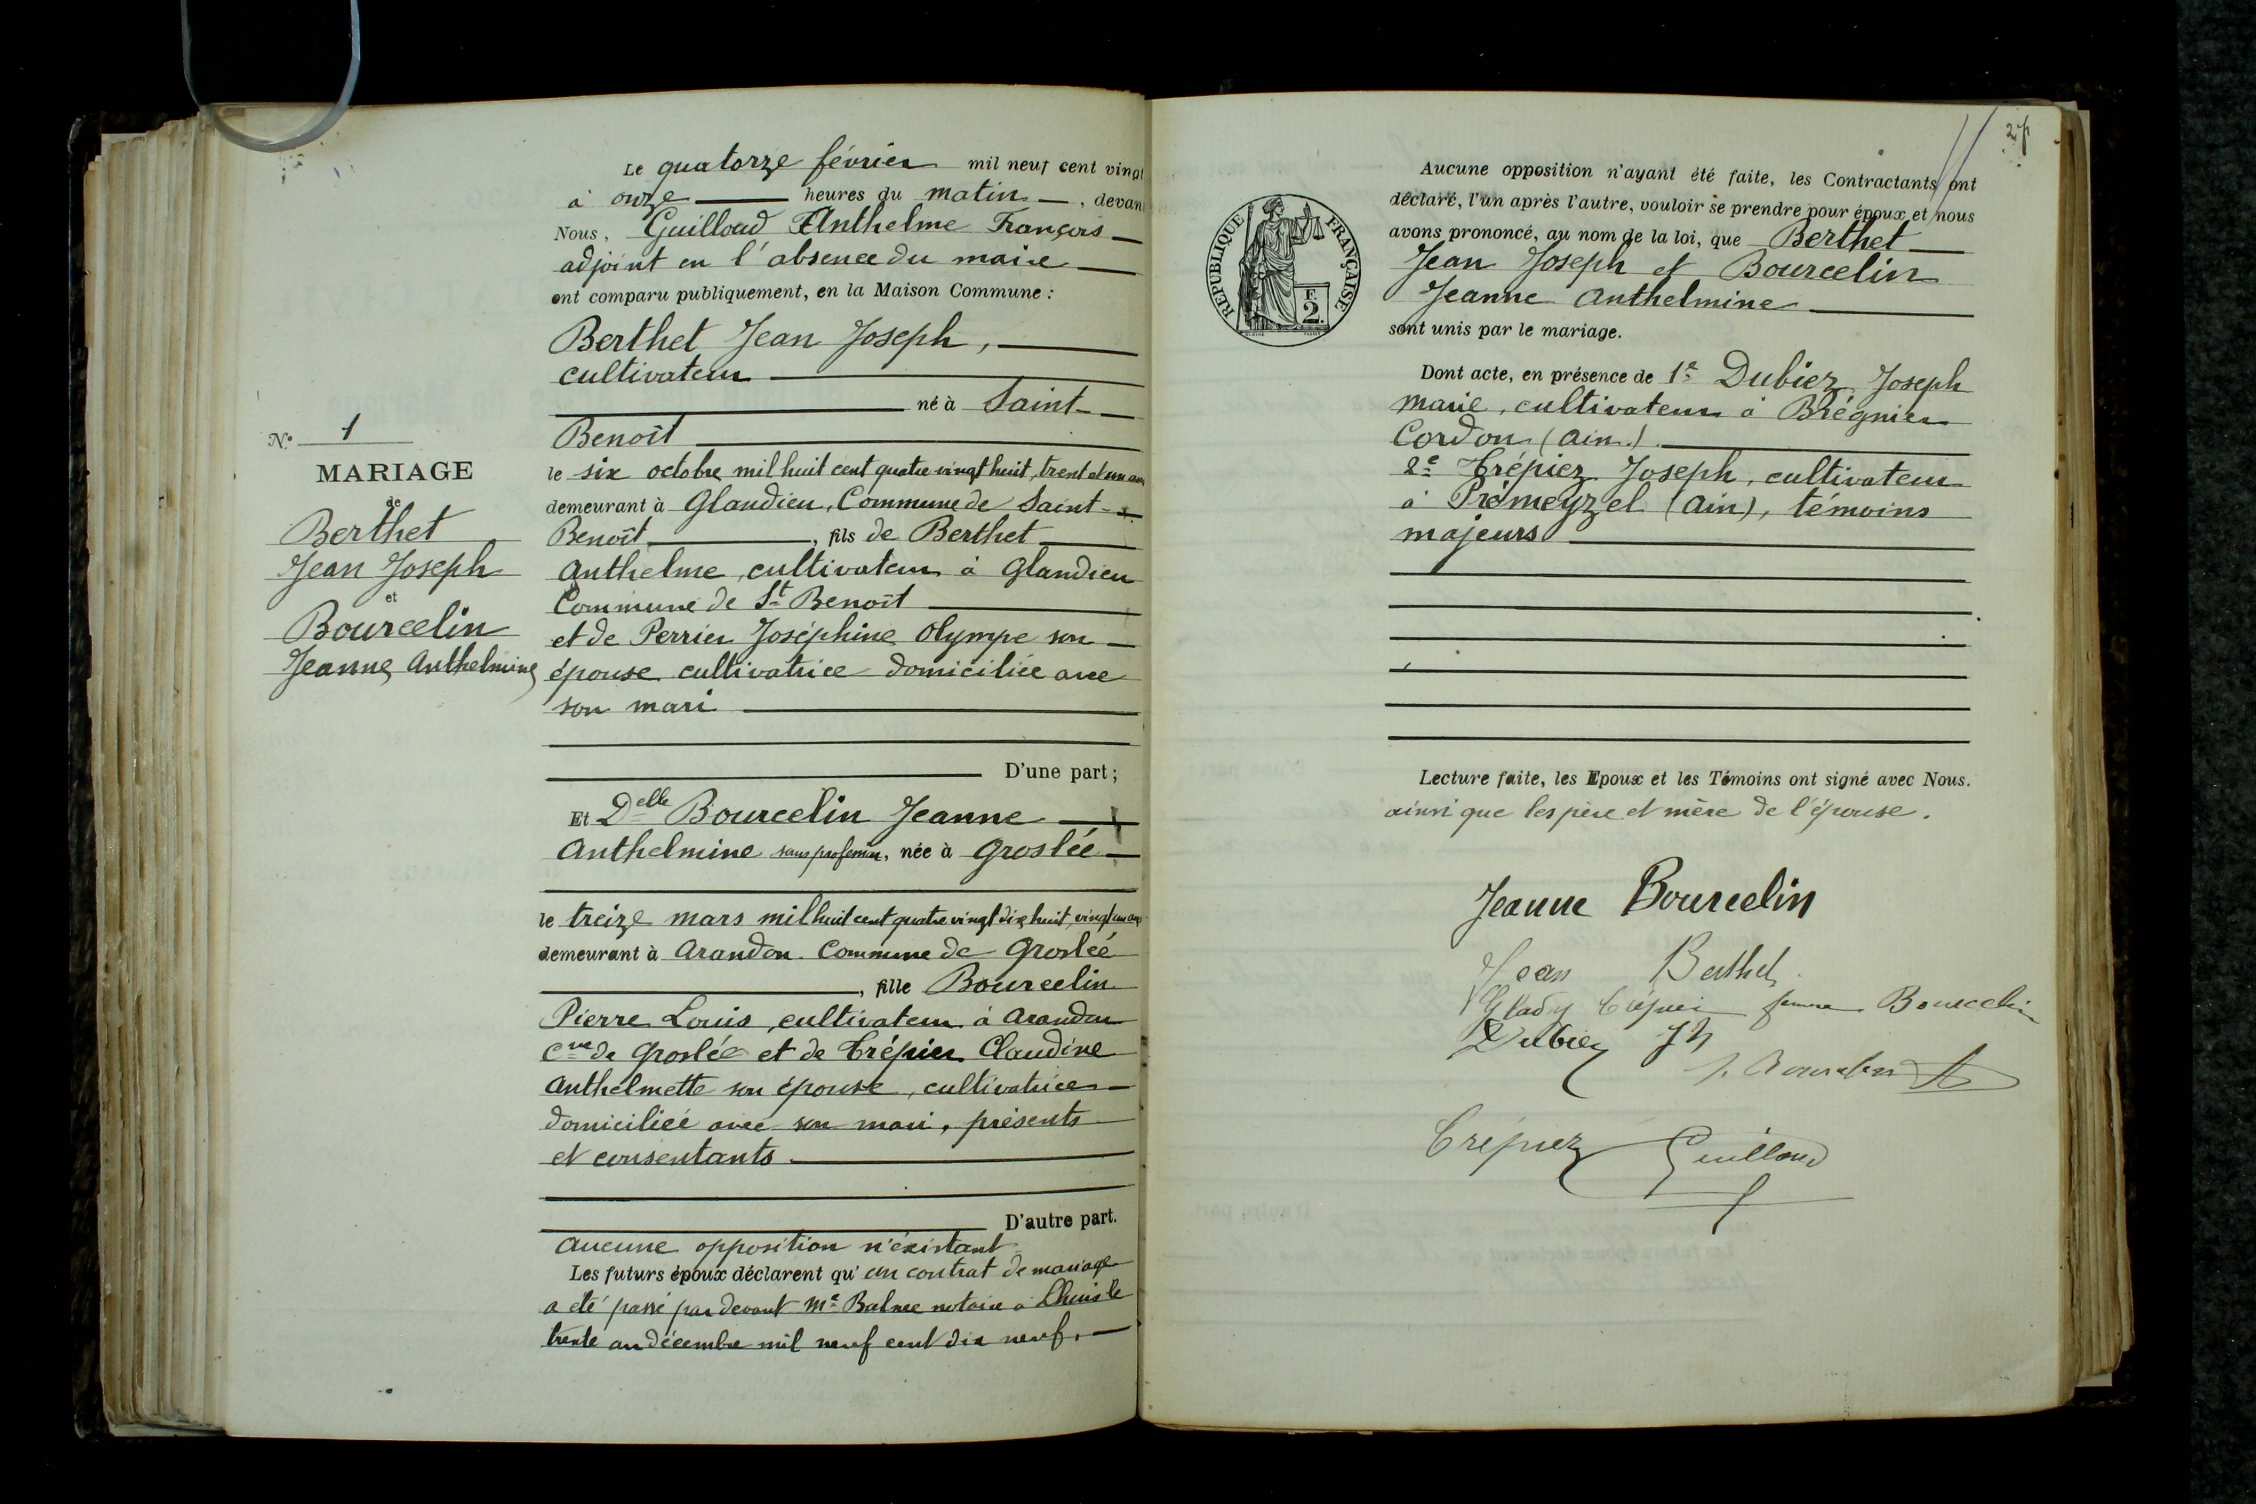 Le quatorze février mil neuf cent vingt
à onze heures du matin, devant
Nous, Guilloud Anthelme François
adjoint en l'absence du maire
ont comparu publiquement, en la Maison Commune :
Berthet Jean Joseph,
cultivateur
né à Saint-
Benoît
le six octobre mil huit cent quatre vingt huit, trent et un ans
demeurant à Glandieu, Commune de Saint-
Benoît, fils de Berthet
Anthelme, cultivateur à Glandieu
Commune de St Benoît
et de Perrier Joséphine Olympe son
épouse cultivatrice domiciliée avec
son mari
D'une part ;
N° 1
MARIAGE
de
Berthet
Jean Joseph
et
Bourcelin
Jeanne Anthelmine
Et Delle Bourcelin Jeanne
Anthelmine sans profession, née à Groslée
le treize mars mil huit cent quatre vingt dix huit, vingt un ans
demeurant à Arandon Commune de Groslée
, fille Bourcelin
Pierre Louis, cultivateur à Arandon
Cne de Groslée et de Trépier Claudine
Anthelmette son épouse, cultivatrice
domiciliée avec son mari, présents
et consentants.
D'autre part.
Aucune opposition n'existant
Les futurs époux déclarent qu'un contrat de mariage
a été passé par devant Me Balme notaire à Lhuis le
trente un décembre mil neuf cent dix neuf.
27
REPUBLIQUE FRANÇAISE
F.
2.
Aucune opposition n'ayant été faite, les Contractants ont
déclaré, l'un après l'autre, vouloir se prendre pour époux et nous
avons prononcé, au nom de la loi, que Berthet
Jean Joseph et Bourcelin
Jeanne Anthelmine
sont unis par le mariage.
Dont acte, en présence de 1e Dubiez Joseph
Marie, cultivateur à Brégnier
Cordon (Ain).
2e Trépiez Joseph, cultivateur
à Prémeyzel (Ain), témoins
majeurs
Lecture faite, les Epoux et les Témoins ont signé avec Nous.
ainsi que les père et mère de l'épouse.
Jeanne Bourcelin
Jean Berthet
Trépier femme Bourcelin
Dubiez Jh
Bourcelin
Trépiez Guilloud